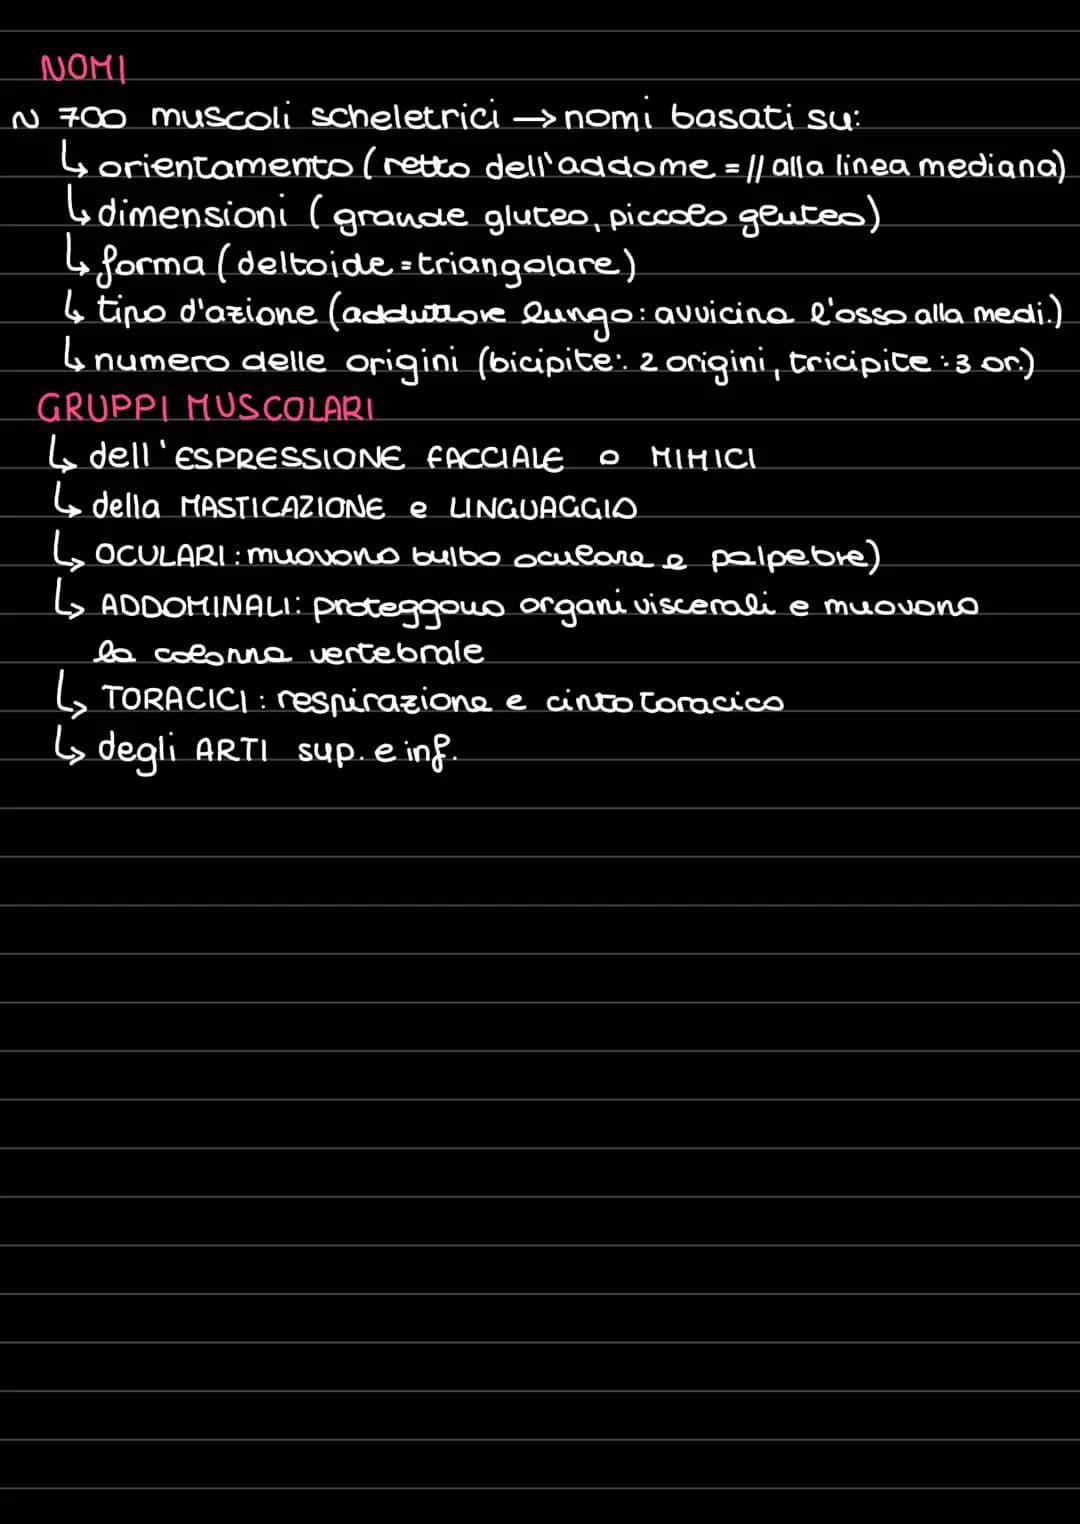 NOMI
~ 700 muscoli scheletrici → nomi basati su:
↳ orientamento (retto dell'addome = // alla linea mediana)
↳ dimensioni (grande gluteo, piccolo gluteo)
↳ forma (deltoide = triangolare)
↳ tipo d'azione (adduttore lungo: avvicina l'osso alla medi.)
↳ numero delle origini (bicipite: 2 origini, tricipite: 3 or.)
GRUPPI MUSCOLARI
↳ dell'ESPRESSIONE FACCIALE o MIMICI
↳ della MASTICAZIONE e LINGUAGGIO
↳ OCULARI: muovono bulbo oculare e palpebre)
↳ ADDOMINALI: proteggono organi viscerali e muovono
la colonna vertebrale
↳ TORACICI: respirazione e cinto toracico
↳ degli ARTI sup. e inf.